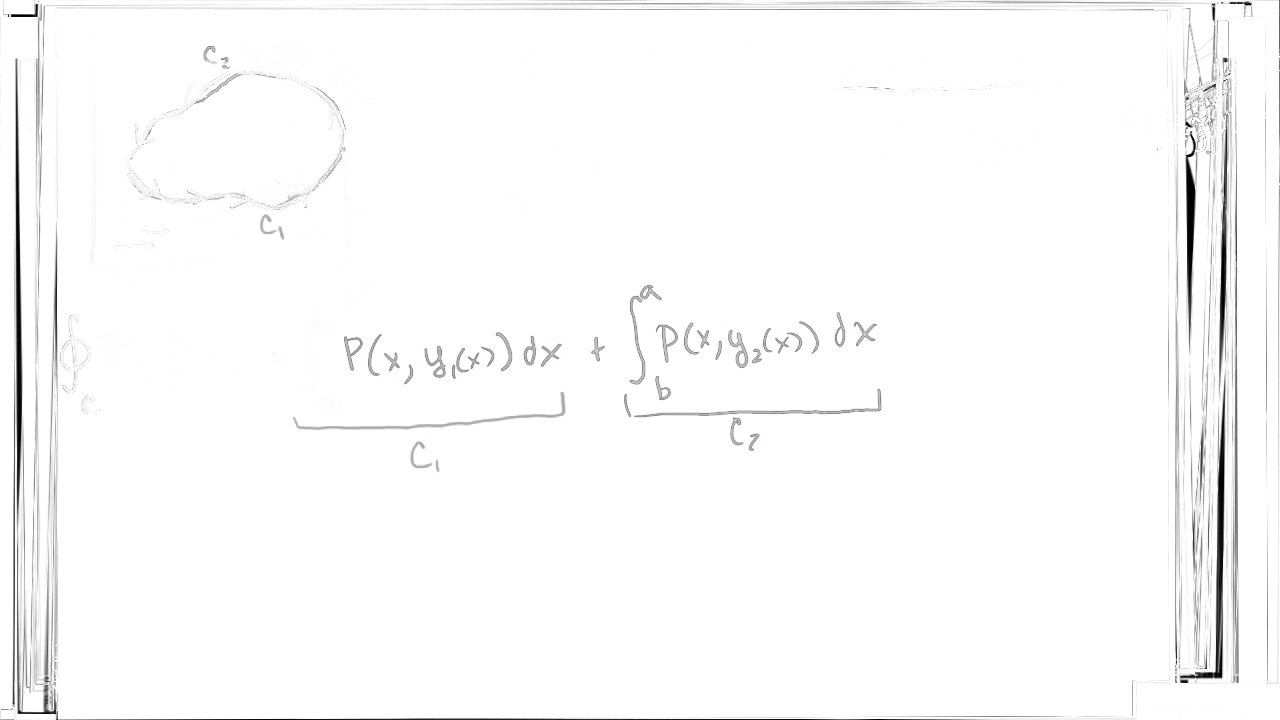 C₂
C₁
∮_C P(x, y₁(x)) dx + ∫_b^a P(x, y₂(x)) dx
C₁ C₂